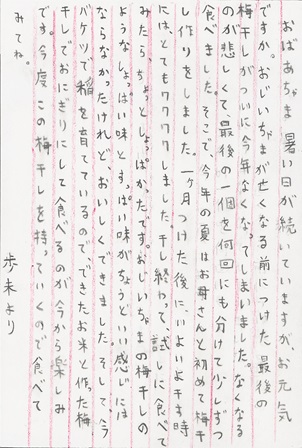 おばあちゃま暑い日が続いていますがお元気
ですか。おじいちゃまが亡くなる前につけた最後の
梅干しがついに今年なくなってしまいました。なくなる
のが悲しくて最後の一個を何回にも分けて少しずつ
食べました。そこで、今年の夏はお母さんと初めて梅干
し作りをしました。一ヶ月つけた後に、いよいよ干す時
にはとてもワクワクしました。干し終わって、試しに食べて
みたら、ちょっとしょっぱかったです。おじいちゃまの梅干しの
ようなしょっぱい味とすっぱい味がちょうどいい感じには
ならなかったけれど、おいしくできました。そして、今
バケツで稲を育てているので、できたお米と作った梅
干しでおにぎりにして食べるのが今から楽しみ
です。今度この梅干しを持っていくので食べて
みてね。
歩未より